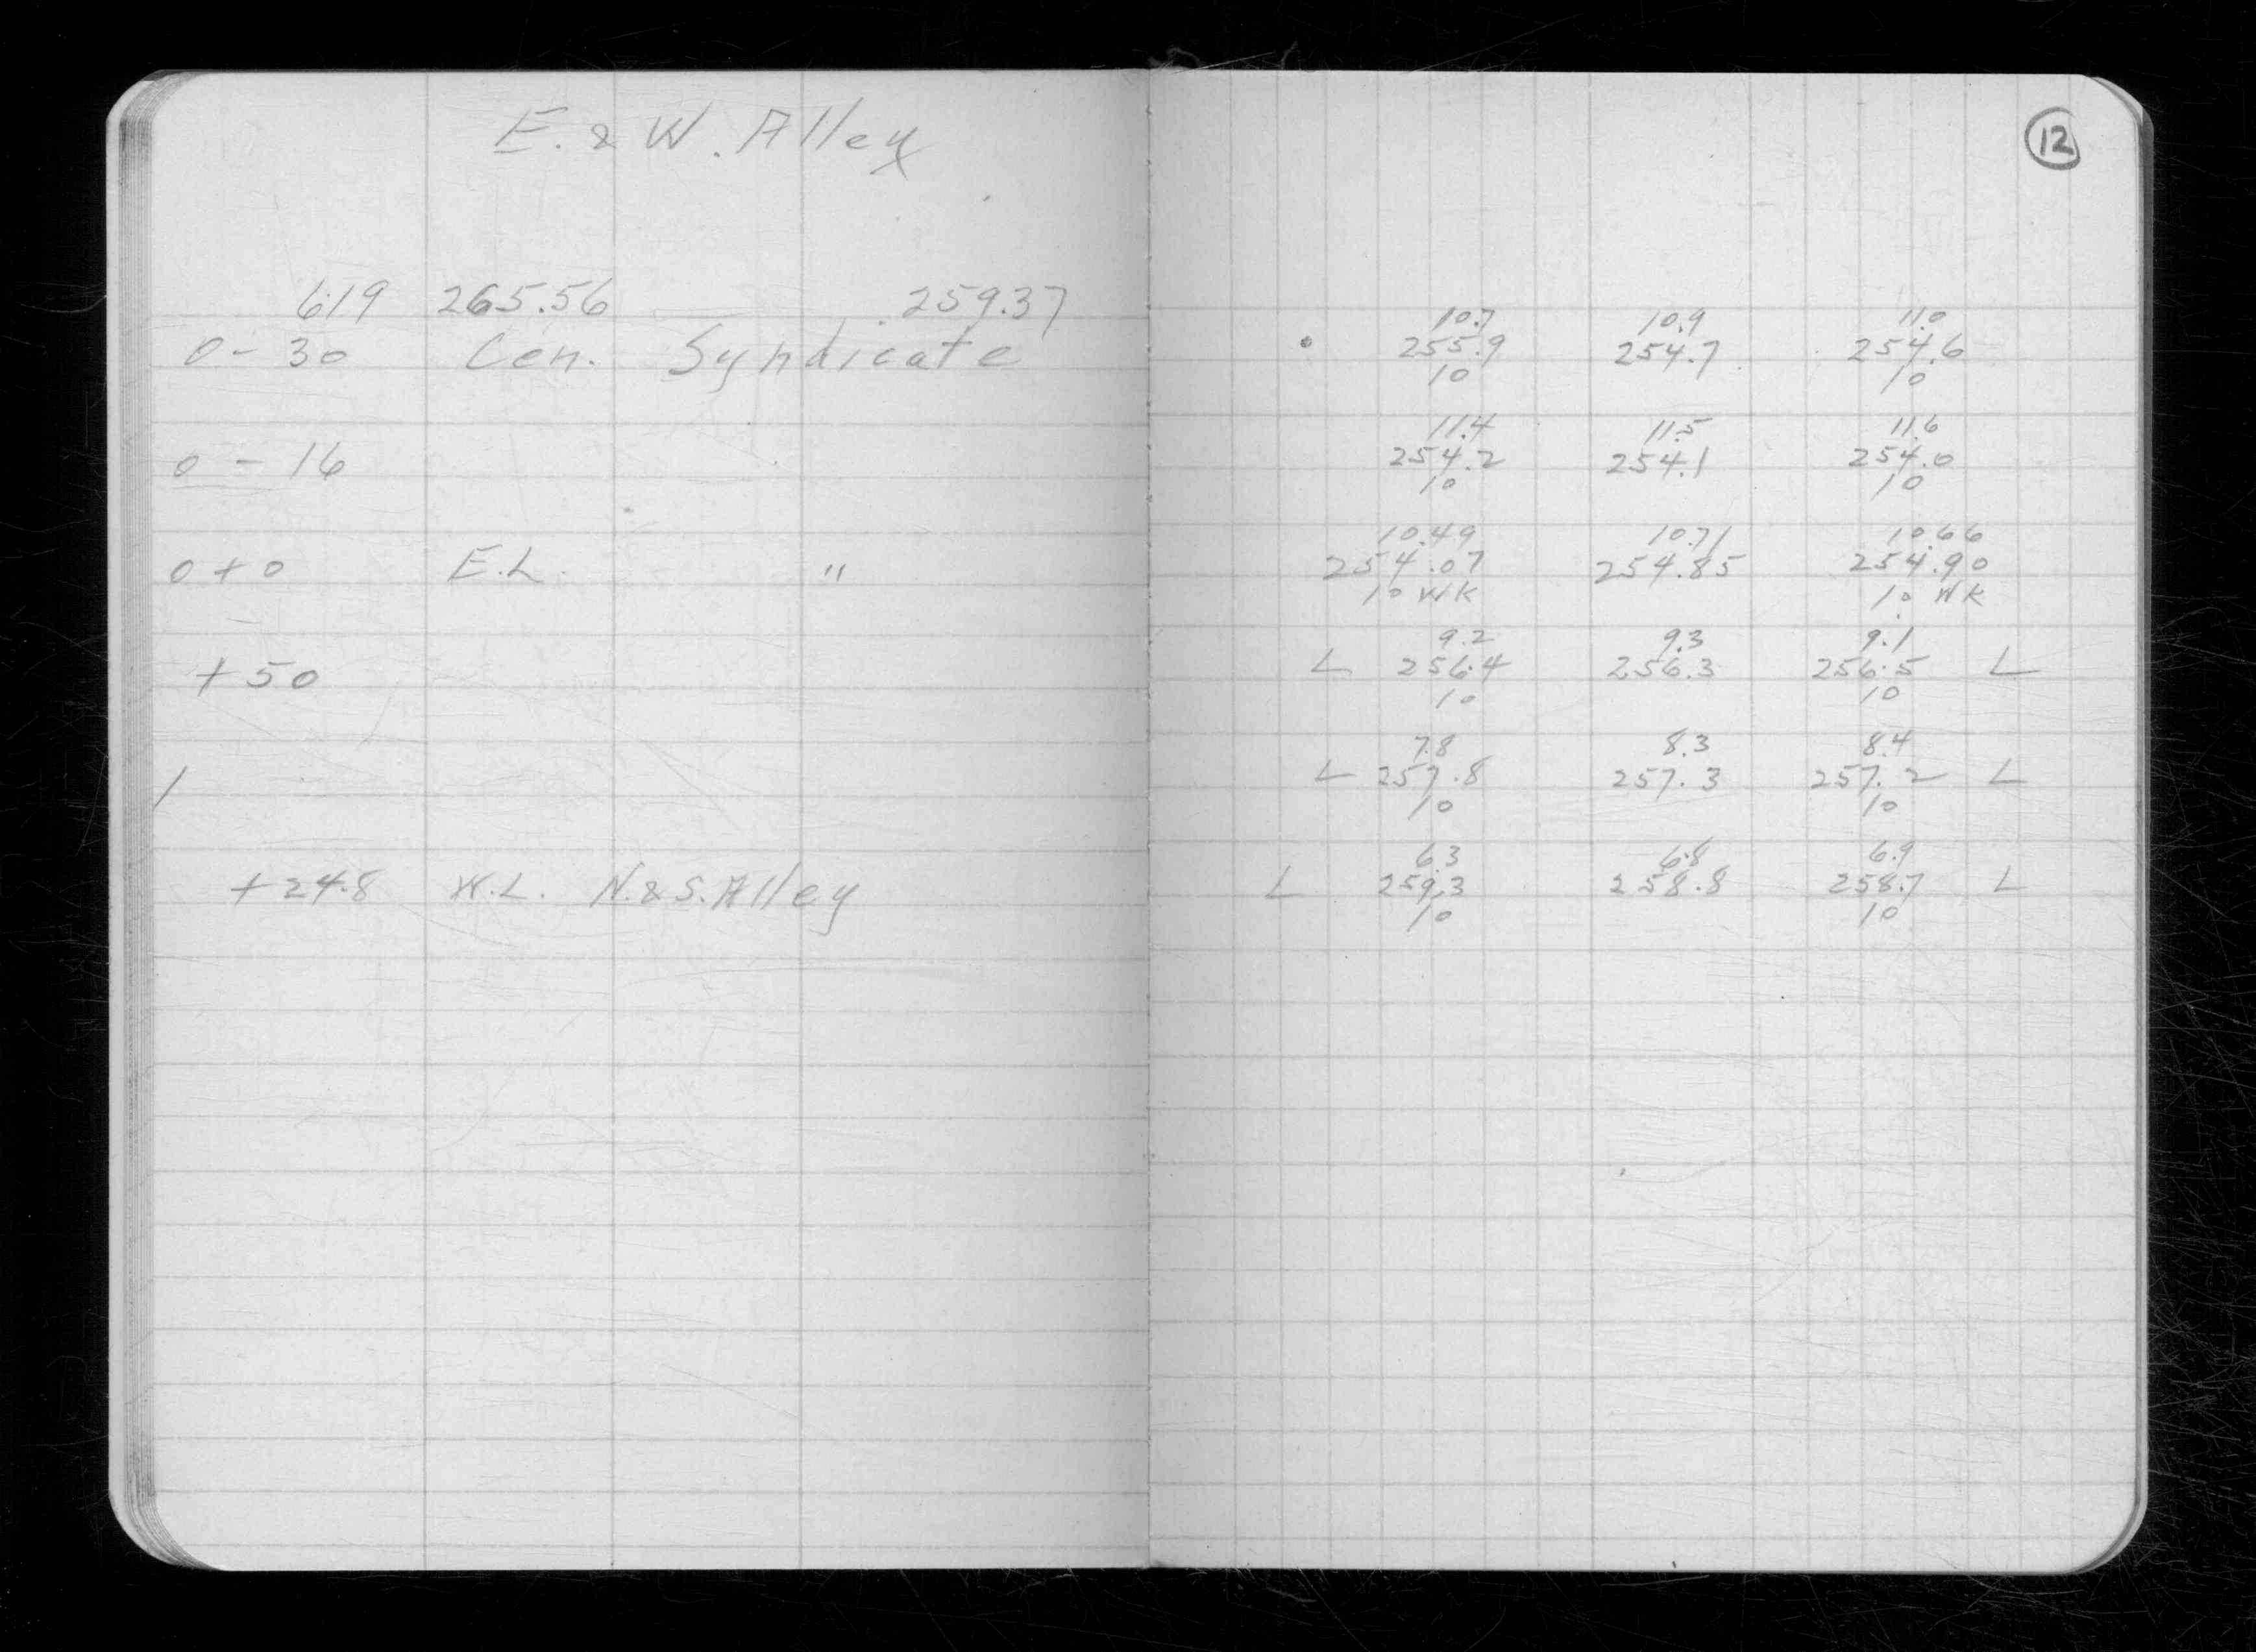 E. & W. Alley
6.19 265.56 259.37
0 - 30 Cen. Syndicate
0 - 16
0 + 0 E.L. "
+ 50
1
+ 24.8 W.L. N. & S. Alley
12
10.7 10.9 11.0
255.9 254.7 254.6
10 10
11.4 11.5 11.6
254.2 254.1 254.0
10 10
10.49 10.71 10.66
254.07 254.85 254.90
10 WK 10 WK
9.2 9.3 9.1
L 256.4 256.3 256.5 L
10 10
7.8 8.3 8.4
L 257.8 257.3 257.2 L
10 10
6.3 6.8 6.9
L 259.3 258.8 258.7 L
10 10